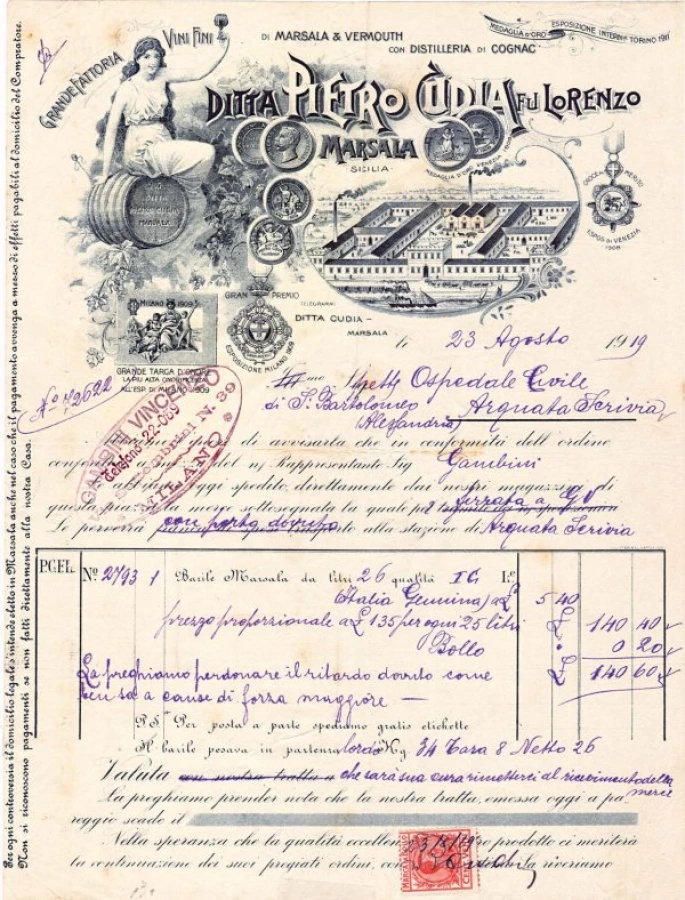 GRANDE FATTORIA VINI FINI
DI MARSALA & VERMOUTH
CON DISTILLERIA DI COGNAC
MEDAGLIA D'ORO ESPOSIZIONE INTERN. TORINO 1911
DITTA PIETRO CÙDIA FU LORENZO
MARSALA
SICILIA
MEDAGLIA D'ORO VENEZIA 1908
CROCE AL MERITO
ESPOS. DI VENEZIA
1908
DITTA
PIETRO CUDIA
MARSALA
MILANO 1909
GRANDE TARGA D'ONORE
LA PIU ALTA ONORIFICENZA
ALL'ESP. DI MILANO 1909
GRAN PREMIO
ESPOSIZIONE MILANO 1909
TELEGRAMMI
DITTA CUDIA
MARSALA
li 23 Agosto 1919
No. 72622
Spett Ospedale Civile
di S. Bartolomeo Arquata Scrivia
(Alessandria)
GARBIT VINCENZO
Telefono 22-089
N. 39
MILANO
di avvisarla che in conformità dell'ordine
del n/ Rappresentante Sig Gambini
abbiamo oggi spedito, direttamente dai nostri magazzini di
questa piazza la merce sottosegnata la quale ferrata a GV
Le perverrà con porto dovuto alla stazione di Arquata Scrivia
P.C. FL. No. 2793 1 Barile Marsala da litri 26 qualità I G L.
Italia Genuina) a £ 5 40
prezzo proporzionale a £ 135 per ogni 25 litri £ 140 40
Bollo 0 20
£ 140 60
La preghiamo perdonare il ritardo dovuto come
ben sa a cause di forza maggiore —
P.S. Per posta a parte spediamo gratis etichette
Il barile pesava in partenza lordo Kg. 34 Tara 8 Netto 26
Valuta con nostra tratta a che sarà sua cura rimetterci al ricevimento della
merce
La preghiamo prender nota che la nostra tratta, emessa oggi a pa-
reggio scade il
Nella speranza che la qualità eccellente prodotto ci meriterà
la continuazione dei suoi pregiati ordini, La riveriamo
Per ogni controversia il domicilio legale s'intende eletto in Marsala anche nel caso che il pagamento avvenga a mezzo di effetti pagabili al domicilio del Compratore.
Non si riconoscono pagamenti se non fatti direttamente alla nostra Casa.